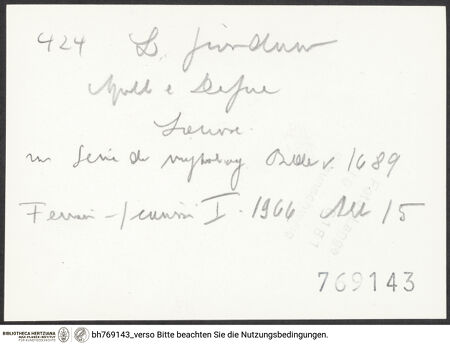 424 L. Giordano
Apollo e Dafne
Louvre
1689
Ferrari - Scavizzi I. 1966 All 15
769143
BIBLIOTHECA HERTZIANA
MAX-PLANCK-INSTITUT
FÜR KUNSTGESCHICHTE
bh769143_verso Bitte beachten Sie die Nutzungsbedingungen.